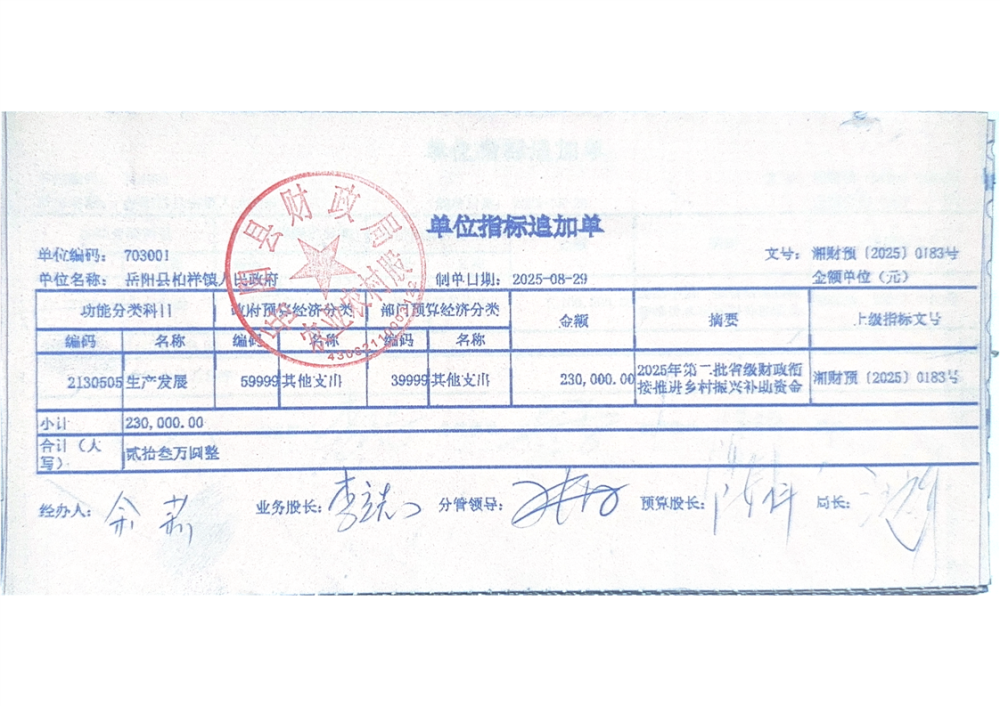 单位指标追加单
单位编码： 703001 文号： 湘财预〔2025〕0183号
单位名称： 岳阳县柏祥镇人民政府 制单日期： 2025-08-29 金额单位（元）
功能分类科目 政府预算经济分类 部门预算经济分类 金额 摘要 上级指标文号
编码 名称 编码 名称 编码 名称
2130505 生产发展 59999 其他支出 39999 其他支出 230,000.00 2025年第二批省级财政衔 湘财预〔2025〕0183号
接推进乡村振兴补助资金
小计 230,000.00
合计（大 贰拾叁万圆整
写）
经办人： 余莉 业务股长： 分管领导： 预算股长： 局长：
岳阳县财政局
农业农村股